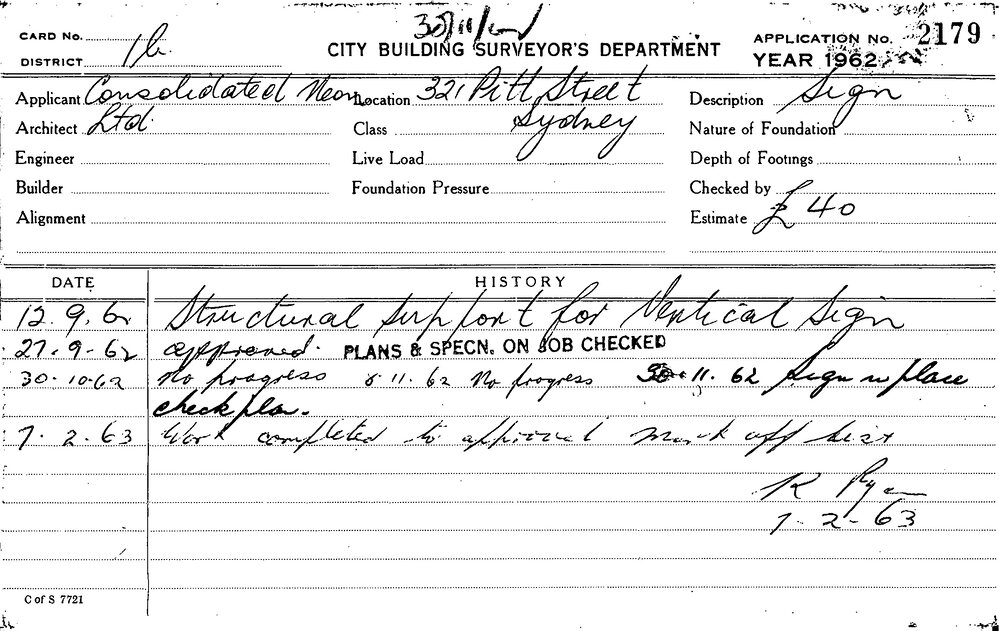 30/11/62
CARD No.
CITY BUILDING SURVEYOR'S DEPARTMENT
APPLICATION No. 2179
DISTRICT 1b
YEAR 1962
Applicant Consolidated Neon Location 321 Pitt Street Description Sign
Architect Ltd. Class Sydney Nature of Foundation
Engineer Live Load Depth of Footings
Builder Foundation Pressure Checked by
Alignment Estimate £ 40
DATE HISTORY
12.9.62 Structural support for Vertical Sign
27.9.62 approved. PLANS & SPECN. ON JOB CHECKED
30.10.62 No progress 8 11. 62 No progress 30.11.62 Sign in place
check plan.
7.2.63 Work completed to approval mark off list
K Ryan
7-2-63
C of S 7721